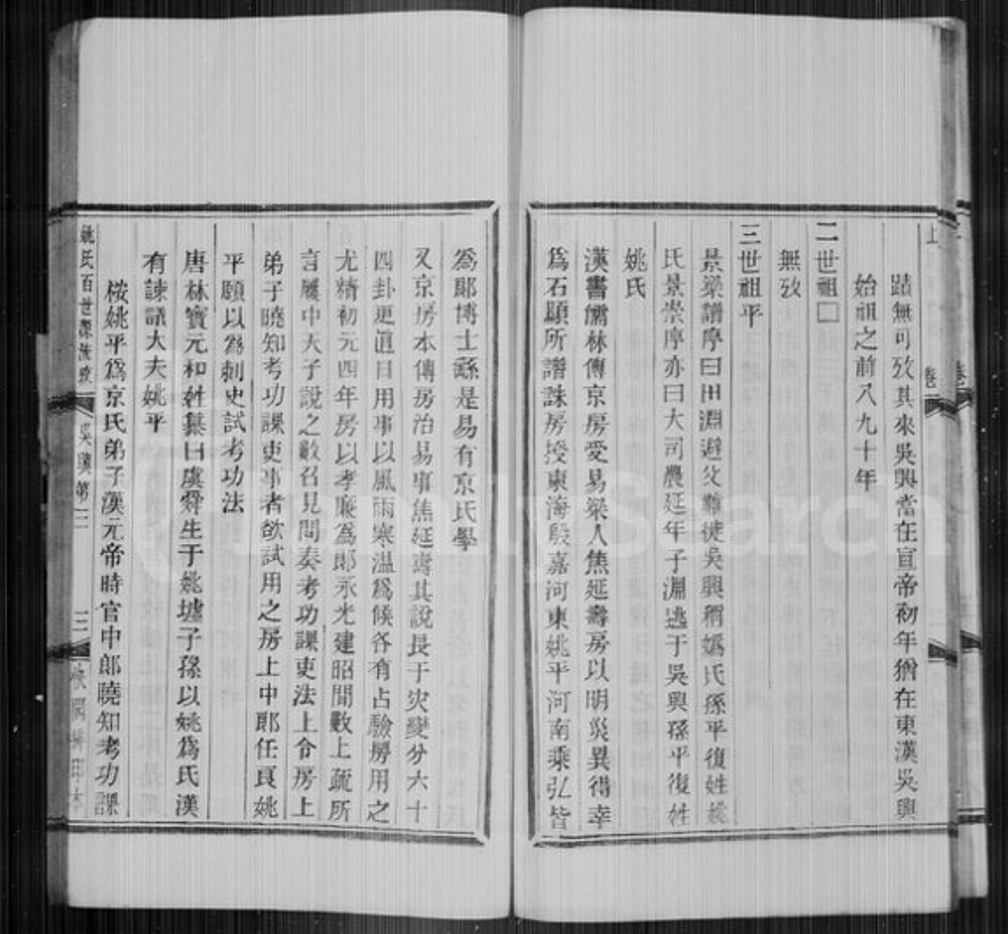 蹟無可攷其來吳興當在宣帝初年猶在東漢吳興
始祖之前八九十年
二世祖□
無攷
三世祖平
景梁譜摩曰田淵避父難徙吳興稱嬀氏孫平復姓姚
氏景崇摩亦曰大司農延年子淵逃于吳興孫平復姓
姚氏
漢書儒林傳京房受易梁人焦延壽房以明災異得幸
爲石顯所譖誅房授東海殷嘉河東姚平河南乘弘皆
爲郞博士繇是易有京氏學
又京房本傳房治易事焦延壽其說長于災變分六十
四卦更直日用事以風雨寒溫爲候各有占驗房用之
尤精初元四年房以孝廉爲郞永光建昭間數上疏所
言屢中天子說之數召見問奏考功課吏法上令房上
弟子曉知考功課吏事者欲試用之房上中郞任良姚
平願以爲刺史試考功法
唐林寶元和姓纂曰虞舜生于姚墟子孫以姚爲氏漢
有諫議大夫姚平
桉姚平爲京氏弟子漢元帝時官中郞曉知考功課
姚氏百世源流攷 吳興第三 三